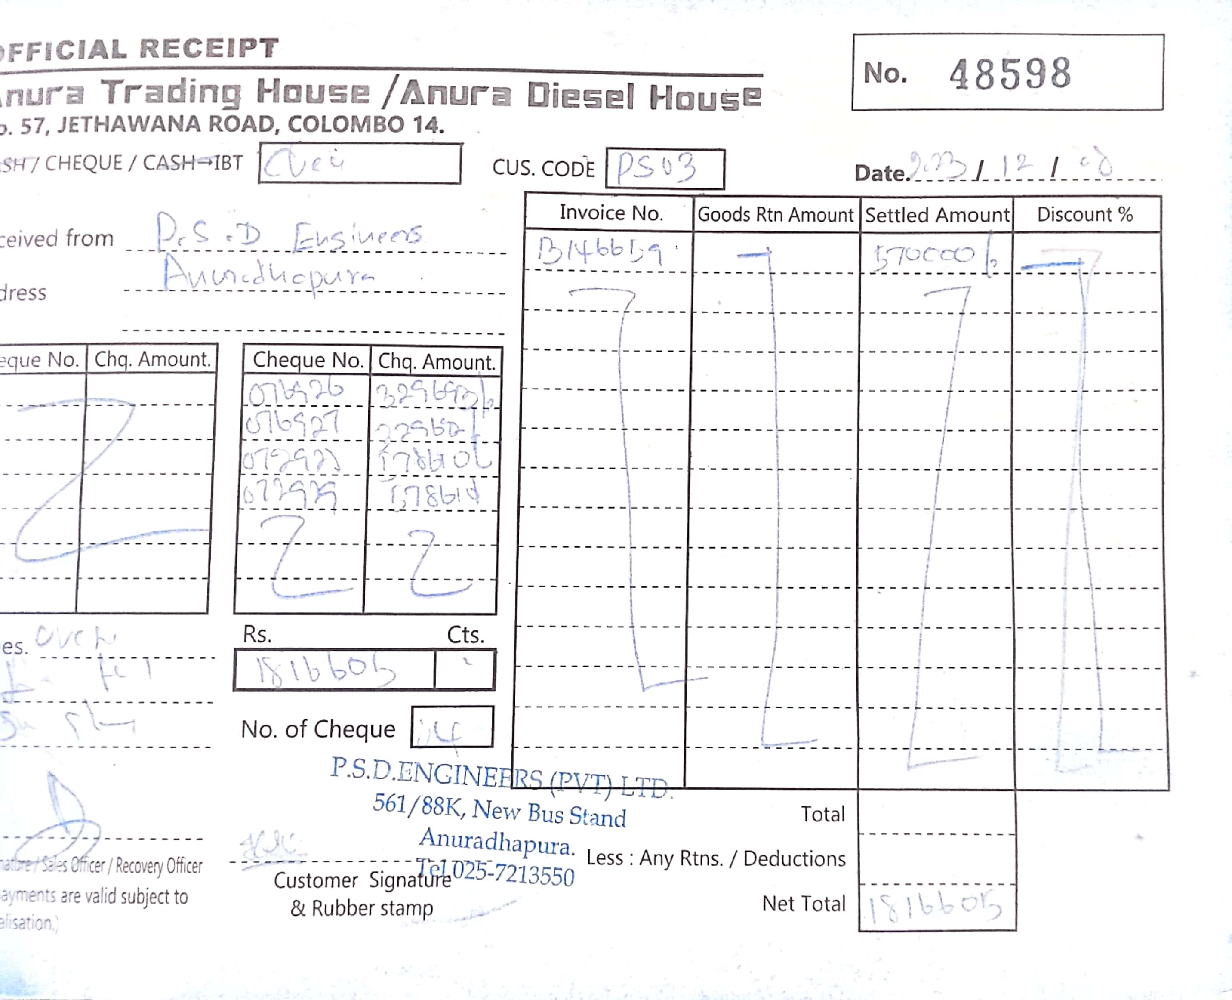 OFFICIAL RECEIPT
No. 48598
Anura Trading House / Anura Diesel House
o. 57, JETHAWANA ROAD, COLOMBO 14.
SH / CHEQUE / CASH→IBT CUS. CODE PS03 Date. 2023 / 12 /
ceived from P.S.D Engineers
dress Anuradhapura
Invoice No. Goods Rtn Amount Settled Amount Discount %
B146659 570000/-
eque No. Chq. Amount. Cheque No. Chq. Amount.
076926
076927
es.
Rs. Cts.
1816605
No. of Cheque 4
P.S.D.ENGINEERS (PVT) LTD.
561/88K, New Bus Stand
Anuradhapura.
Tel.025-7213550
Total
Less : Any Rtns. / Deductions
Net Total 1816605
nature / Sales Officer / Recovery Officer
ayments are valid subject to
alisation.)
Customer Signature
& Rubber stamp